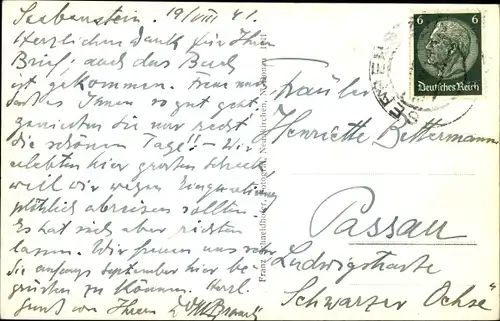 Seebenstein. 19/VIII 41.
Herzlichen Dank für Ihren
Brief; auch das Buch
ist gekommen. Freue mich
daß es Ihnen so gut geht
genießen Sie nur recht
die schönen Tage! - Wir
erlebten hier großen Schreck
weil wir wegen Einquartierung
plötzlich abreisen sollten.
Es hat sich aber richten
lassen. Wir freuen uns sehr
Sie anfangs September hier be-
grüßen zu können. Herzl.
Gruß von Ihrem
Franz Schneidhofer, Photograf, Neunkirchen,
6 6
Deutsches Reich
Fräulein
Henriette Bettermann
Passau
Ludwigstraße
Schwarzer Ochse